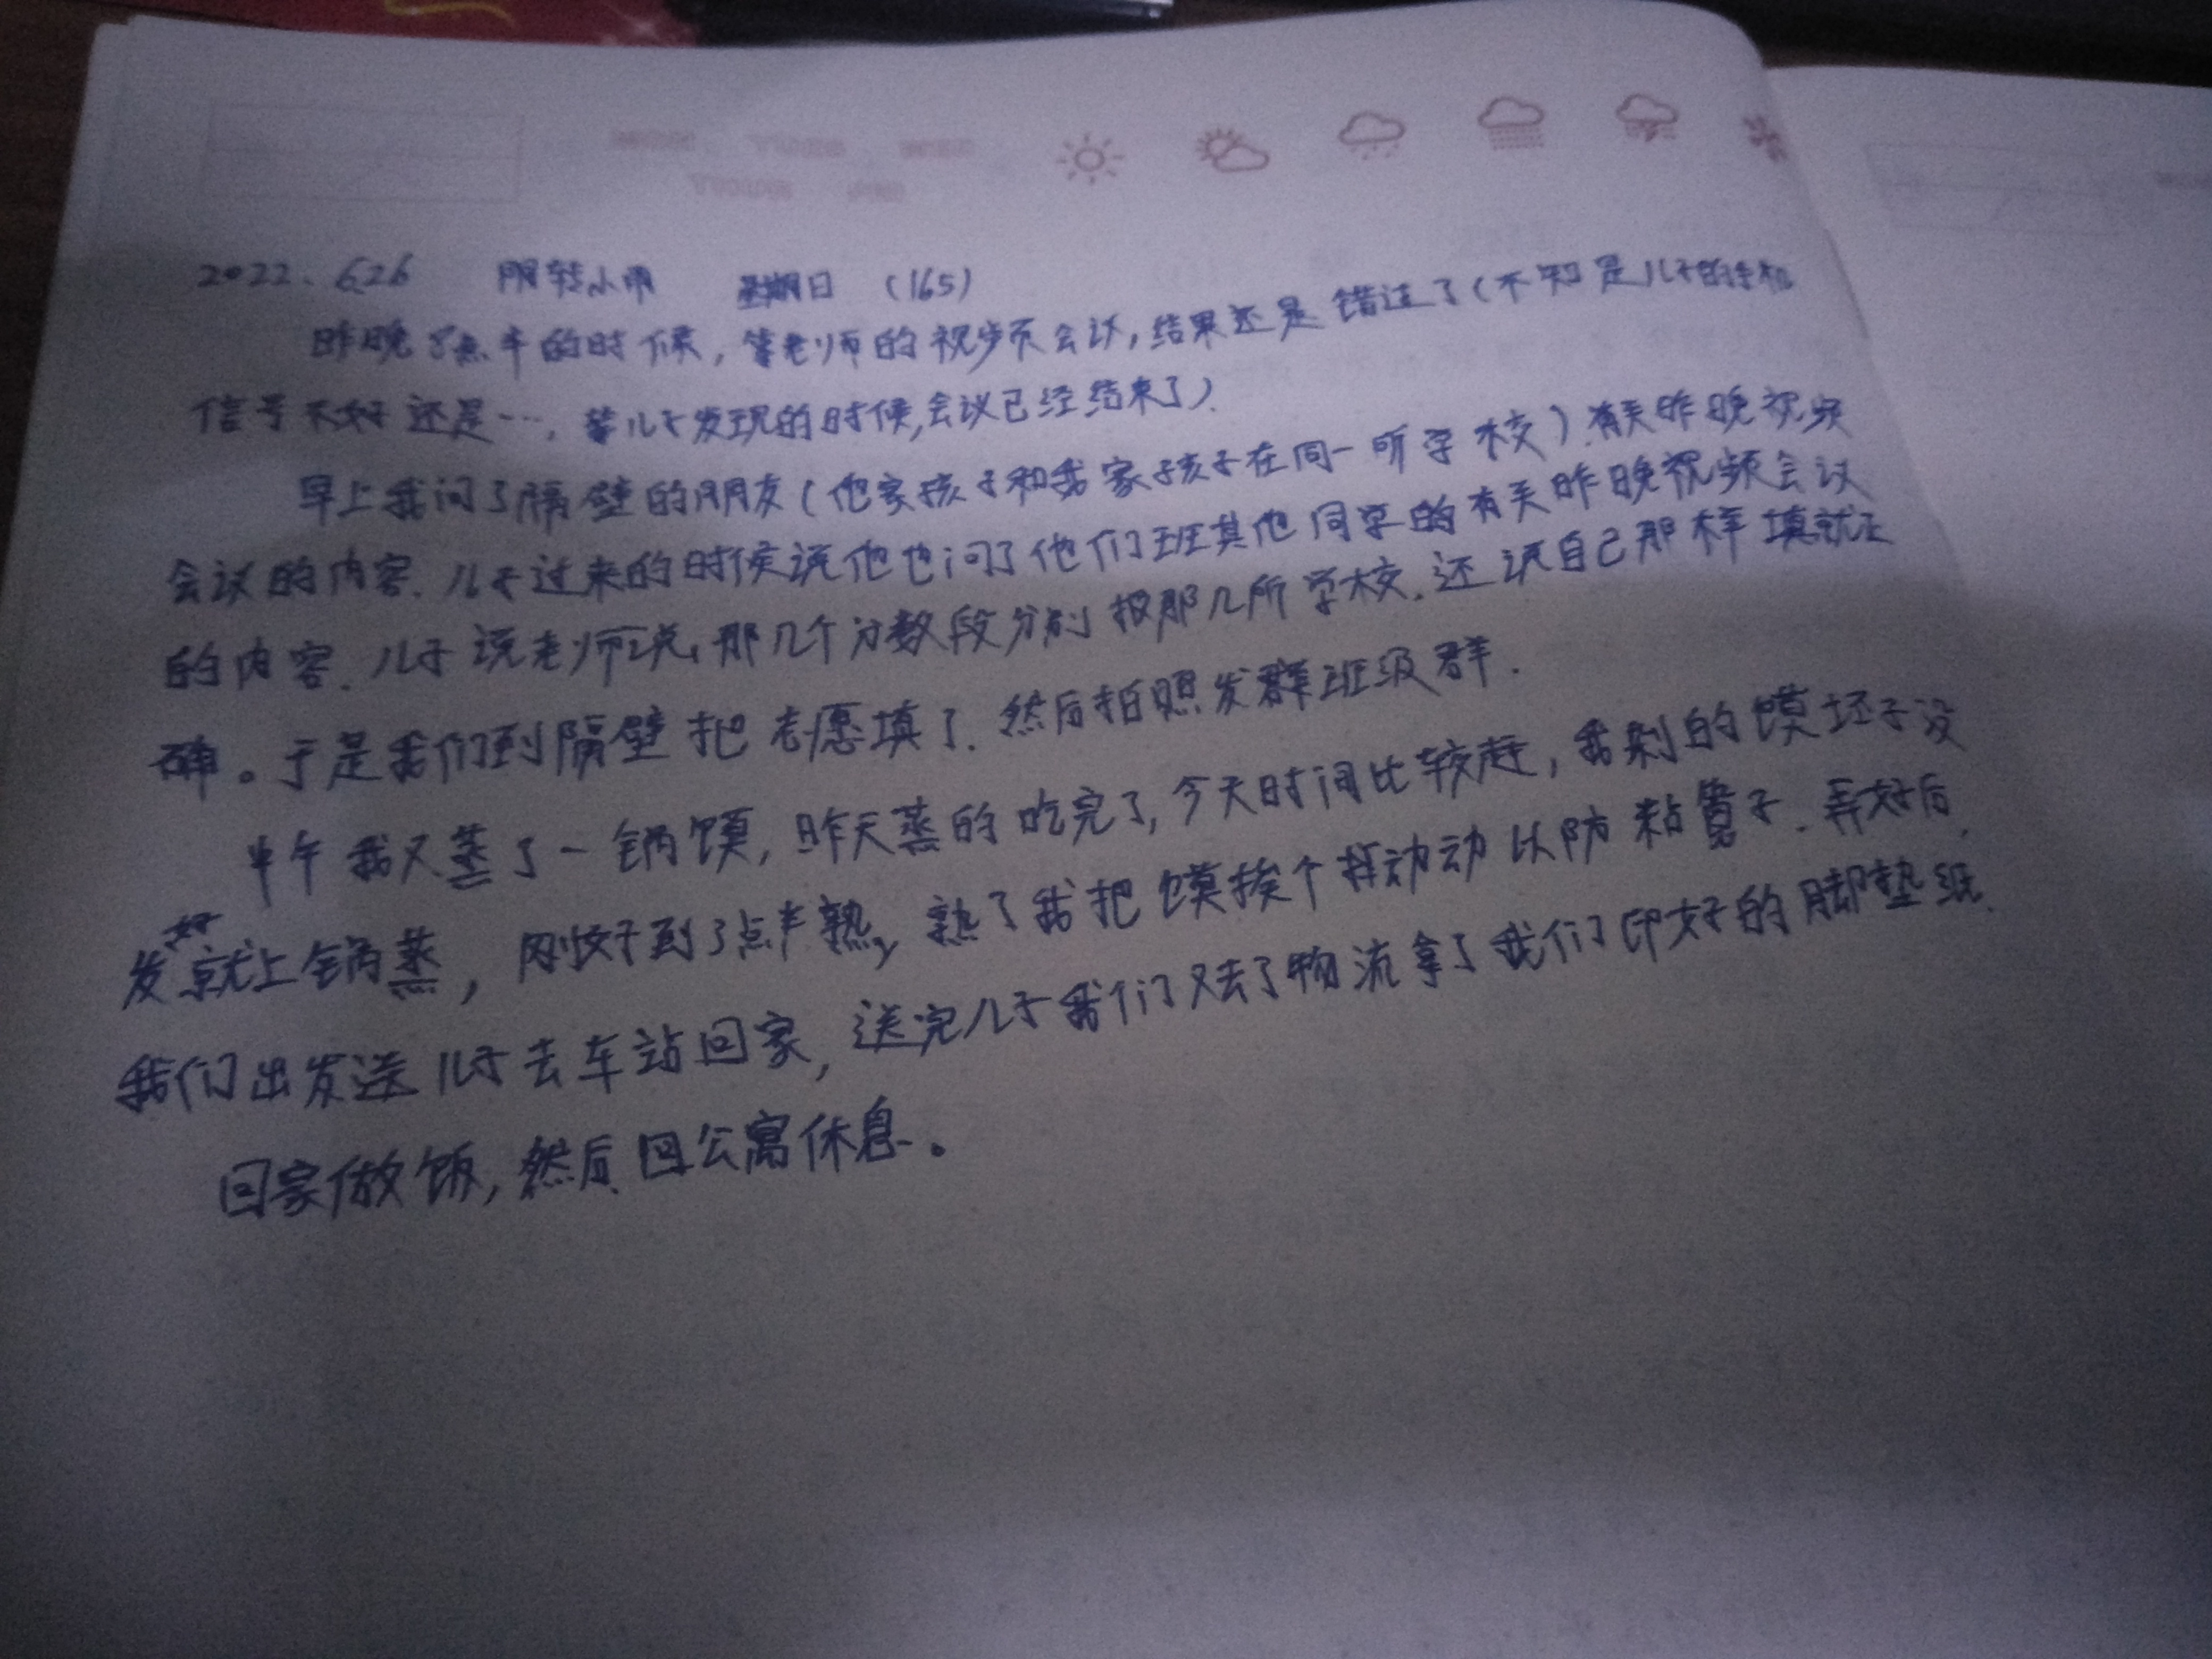 2022.6.26 阴转小雨 星期日 (165)
昨晚8点半的时候,等老师的视频会议,结果还是错过了(不知是儿子的手机
信号不好还是…,等儿子发现的时候,会议已经结束了).
早上我问了隔壁的朋友(他家孩子和我家子孩子在同一所学校).有关昨晚视频
会议的内容.儿子过来的时候说他也问了他们班其他同学的有关昨晚视频会议
的内容.儿子说老师说,那几个分数段分别报那几所学校.还说自己那样填就正
确。于是我们到隔壁把志愿填了.然后拍照发群班级群.
中午我又蒸了一锅馍,昨天蒸的吃完了,今天时间比较赶,我剩的馍坯子没
发好就上锅蒸,刚好于到3点半熟,熟了我把馍挨个挪动动以防粘篦子.弄好后,
我们出发送儿子去车站回家,送完儿子我们又去了物流拿了我们印好的脚垫纸.
回家做饭,然后回公寓休息。